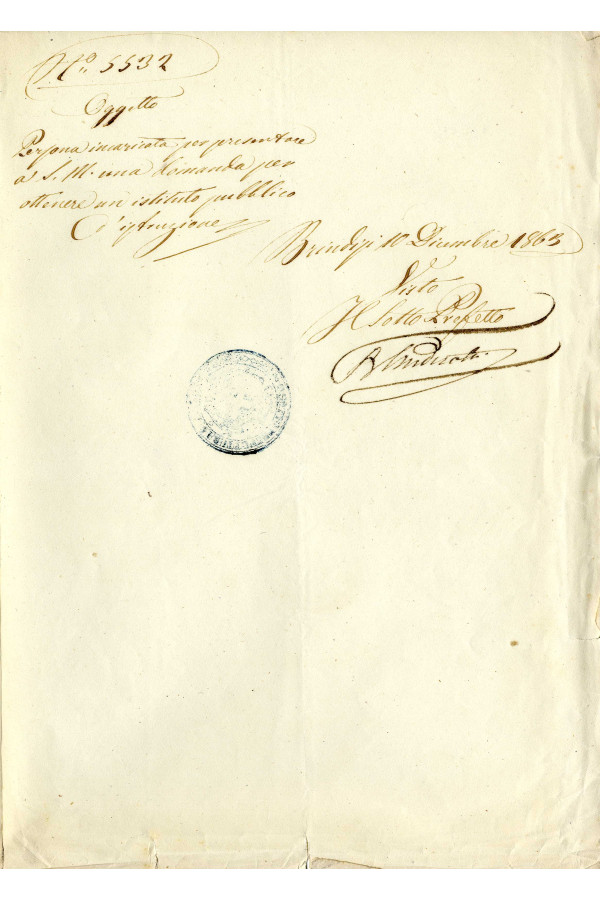 Nº 5532
Oggetto
Persona incaricata per presentare
a S. M. una domanda per
ottenere un istituto pubblico
d'istruzione
Brindisi 10 Dicembre 1863
Visto
Il Sotto Prefetto